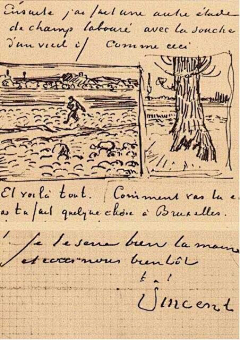 Ensuite j'ai fait une autre étude
de champ labouré avec la souche
d'un vieil if Comme ceci
Et voilà tout. Comment vas tu
as tu fait quelque chose à Bruxelles.
Je te serre bien la main
et écris nous bientôt
t. à t.
Vincent